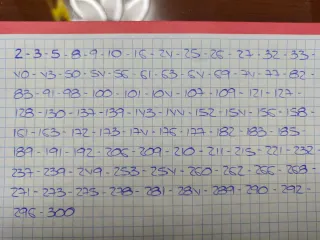 2-3-5-8-9-10-16-24-25-26-27-32-33-
40-43-50-54-56-61-63-64-69-74-77-82
83-91-98-100-101-104-107-109-121-127-
128-130-137-139-143-144-152-154-156-158-
161-163-172-173-174-176-177-182-183-185-
189-191-192-206-209-210-211-215-221-232-
237-239-249-253-254-260-262-266-268-
271-273-275-278-281-284-289-290-292-
296-300